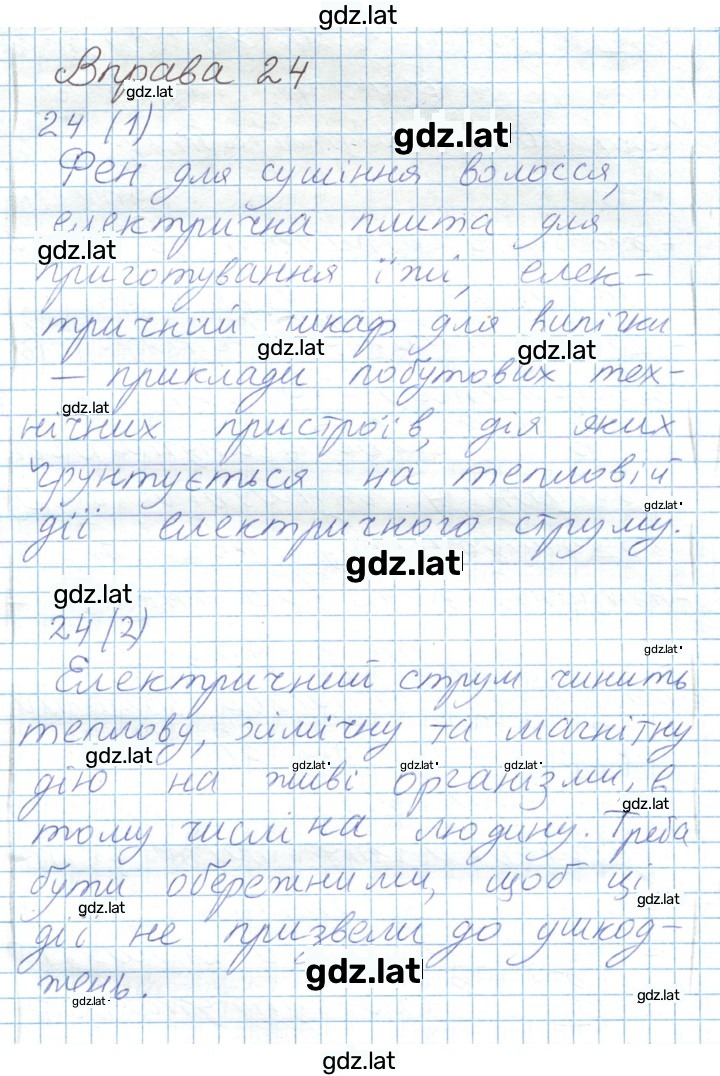 gdz.lat
Вправа 24
gdz.lat
24 (1)
gdz.lat
Фен для сушіння волосся,
електрична плита для
gdz.lat
приготування їжі, елек-
тричний шкаф для випічки
gdz.lat gdz.lat
— приклади побутових тех-
gdz.lat
нічних пристроїв, дія яких
ґрунтується на тепловій
gdz.lat
дії електричного струму.
gdz.lat
gdz.lat
24 (2)
gdz.lat
Електричний струм чинить
теплову, хімічну та магнітну
gdz.lat gdz.lat gdz.lat gdz.lat
дію на живі організми, в
gdz.lat
тому числі на людину. Треба
бути обережними, щоб ці
gdz.lat gdz.lat
дії не призвели до ушкод-
gdz.lat
жень.
gdz.lat gdz.lat
gdz.lat